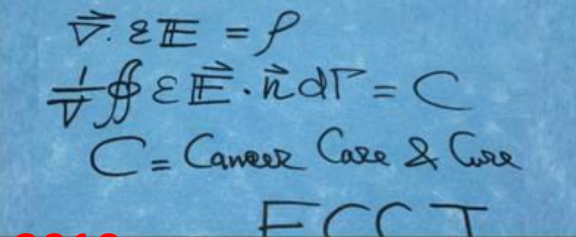 ∇⃗. εE = ρ
1/V ∯ ε E⃗ . n⃗ dΓ = C
C = Cancer Care & Cure
ECCT